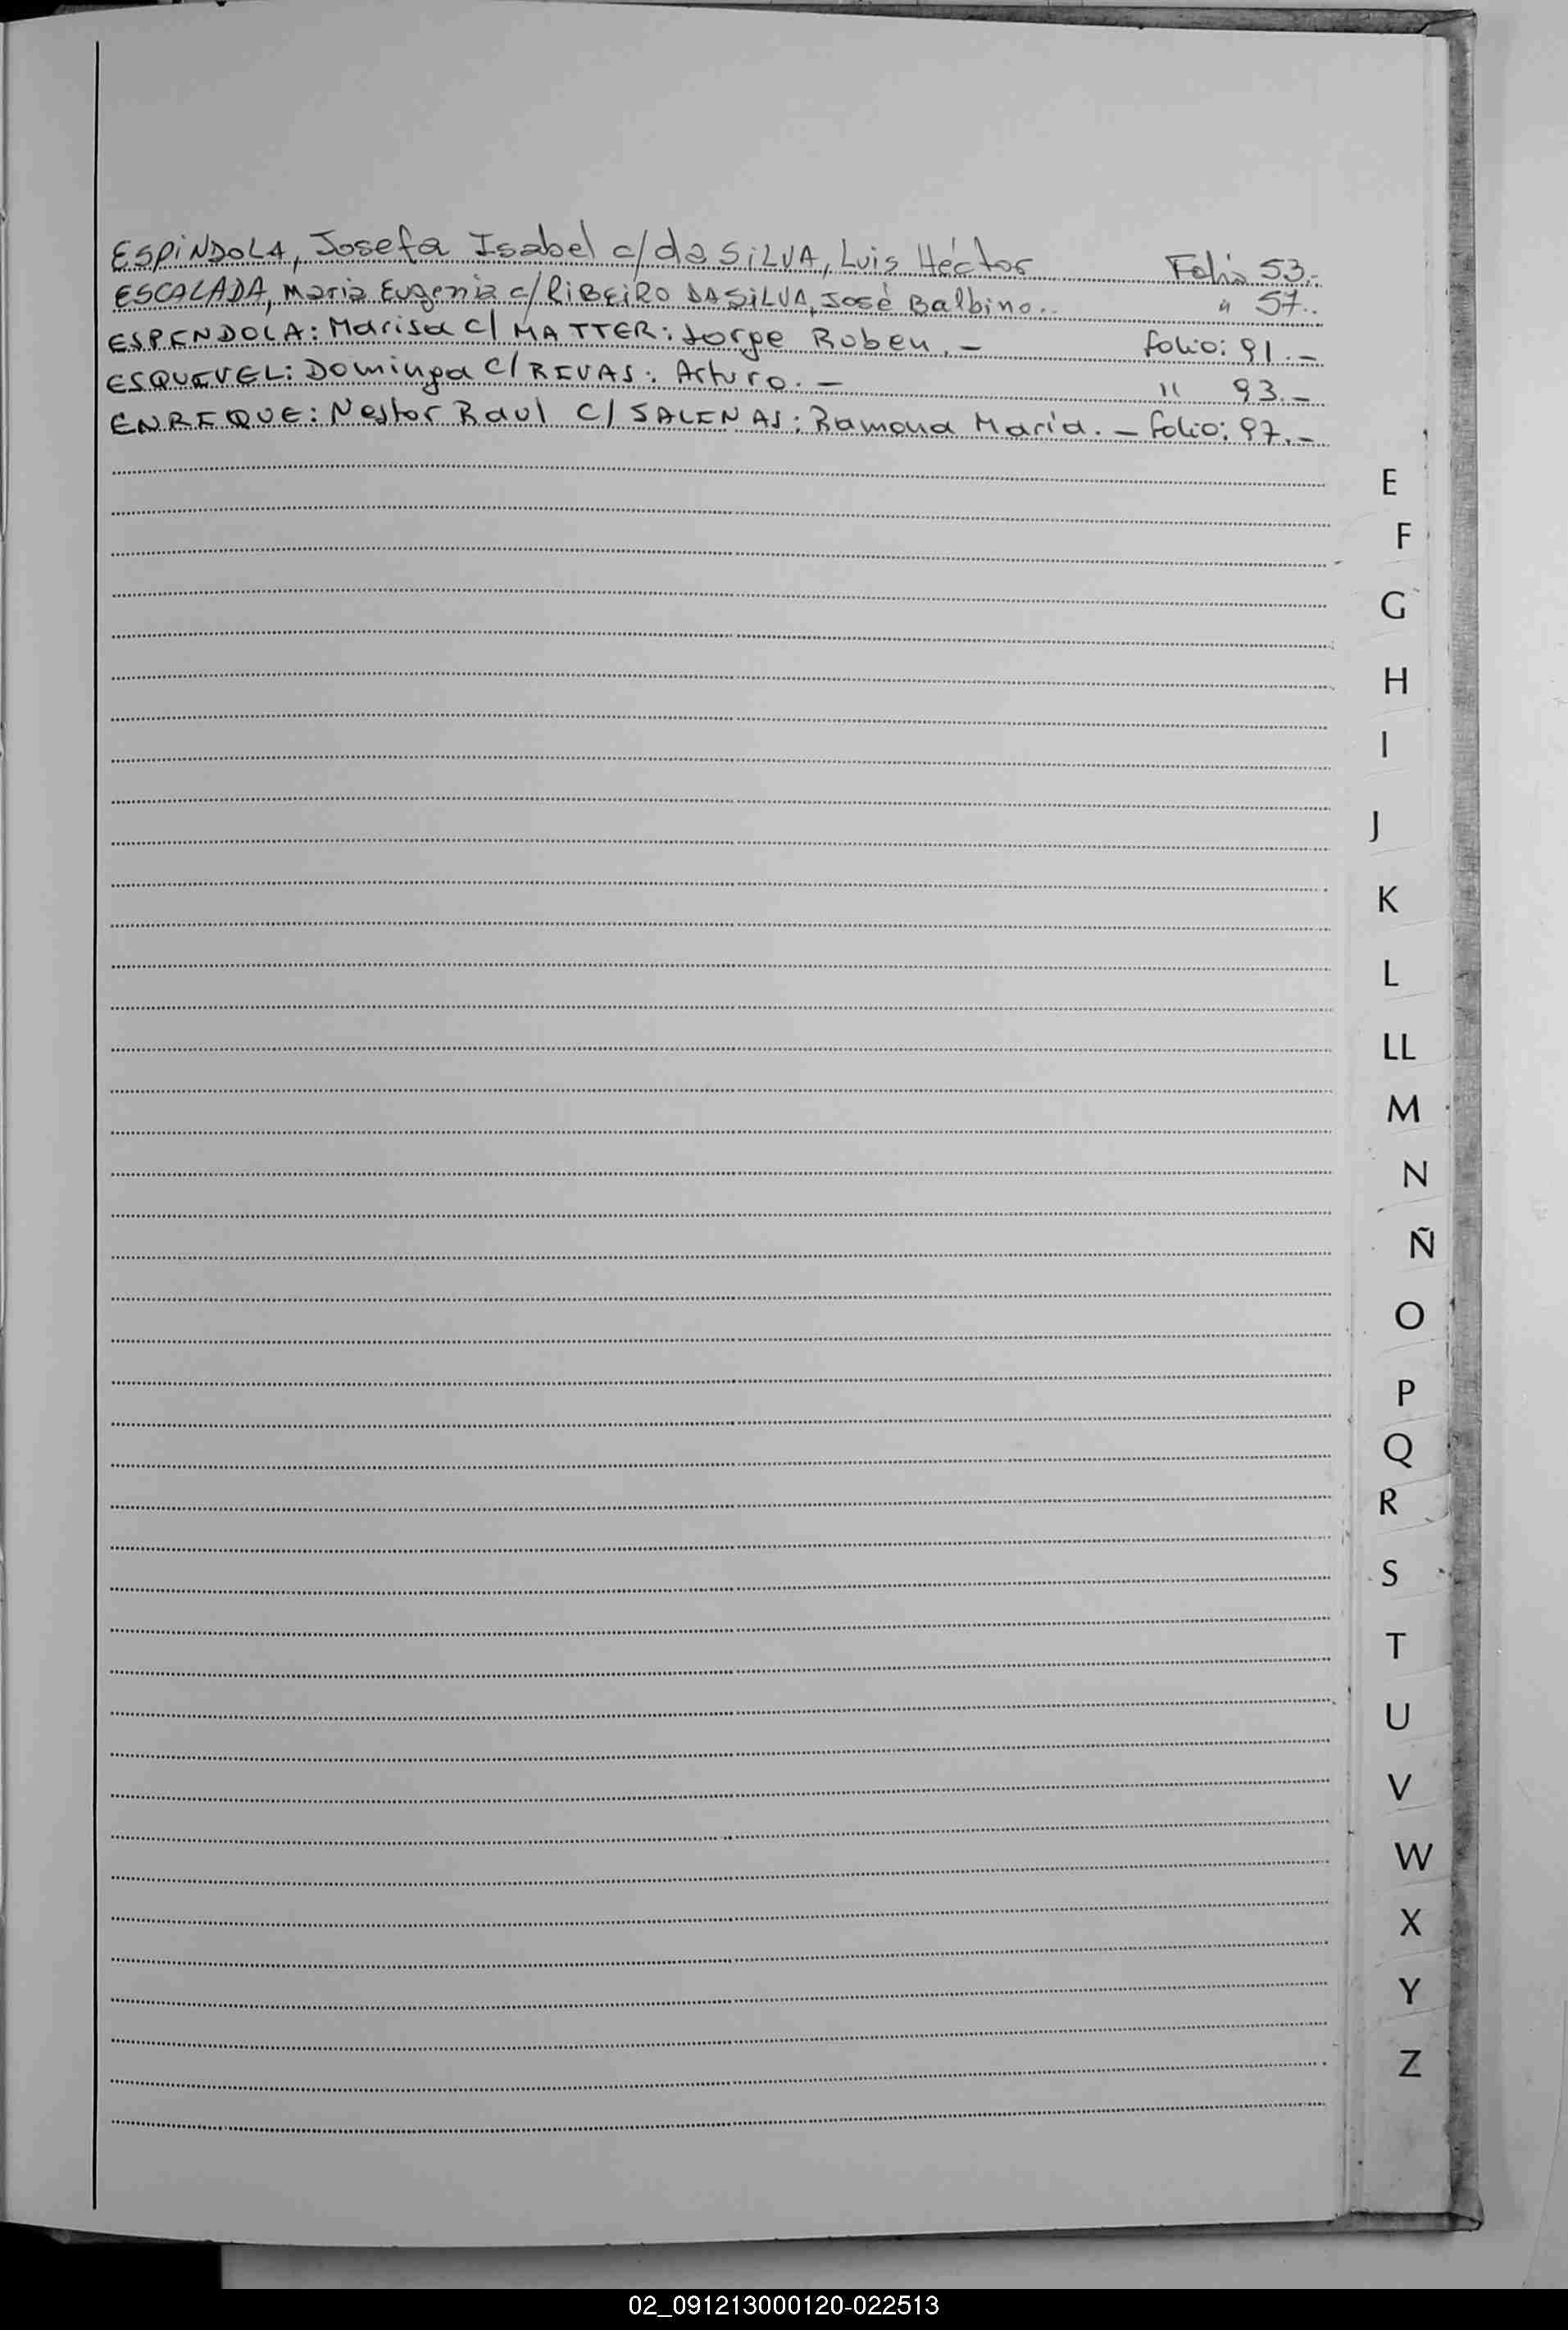 ESPINDOLA, Josefa Isabel c/ da SILVA, Luis Héctor Folio 53.-
ESCALADA, Maria Eugenia c/ RIBEIRO DA SILVA, José Balbino.. " 57..
ESPINDOLA: Marisa c/ MATTER: Jorge Ruben.- folio: 91.-
ESQUIVEL: Dominga c/ RIVAS: Arturo.- " 93.-
ENRIQUE: Nestor Raul c/ SALINAS: Ramona María.- folio: 97.-
E
F
G
H
I
J
K
L
LL
M
N
Ñ
O
P
Q
R
S
T
U
V
W
X
Y
Z
02_091213000120-022513